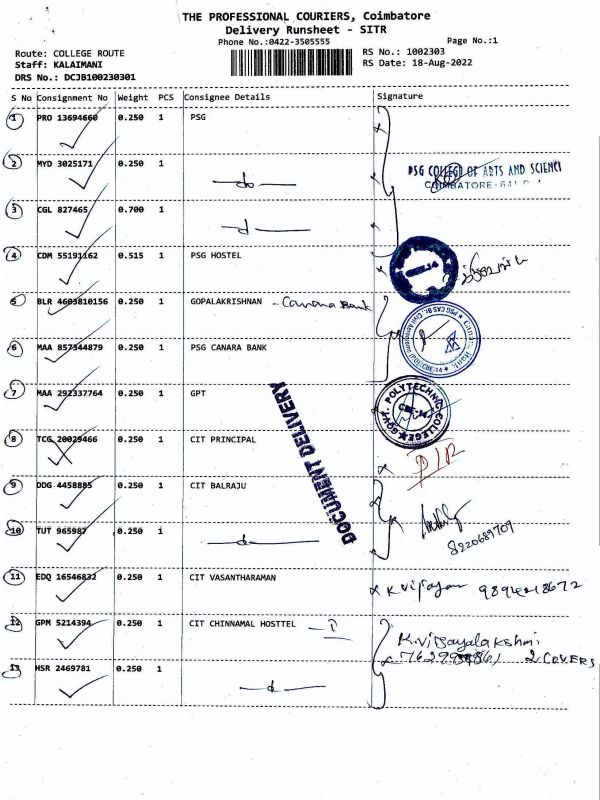 THE PROFESSIONAL COURIERS, Coimbatore
Delivery Runsheet - SITR
Phone No.:0422-3505555
Page No.:1
Route: COLLEGE ROUTE
RS No.: 1002303
Staff: KALAIMANI
RS Date: 18-Aug-2022
DRS No.: DCJB100230301
S No Consignment No Weight PCS Consignee Details Signature
1 PRO 13694660 0.250 1 PSG
2 MYD 3025171 0.250 1 do
PSG COLLEGE OF ARTS AND SCIENCE
COIMBATORE - 641
3 CGL 827465 0.700 1 d
4 CDM 55191162 0.515 1 PSG HOSTEL
5 BLR 4603810156 0.250 1 GOPALAKRISHNAN - Canara Bank
6 MAA 857344879 0.250 1 PSG CANARA BANK
7 MAA 292337764 0.250 1 GPT
GOVT. POLYTECHNIC COLLEGE
CBE-14
DOCUMENT DELIVERY
8 TCG 20029466 0.250 1 CIT PRINCIPAL
9 DDG 4458885 0.250 1 CIT BALRAJU
10 TUT 965987 0.250 1 d
8220689709
11 EDQ 16546832 0.250 1 CIT VASANTHARAMAN
12 GPM 5214394 0.250 1 CIT CHINNAMAL HOSTTEL
K.Vijayalakshmi
2 COVERS
13 HSR 2469781 0.250 1 d